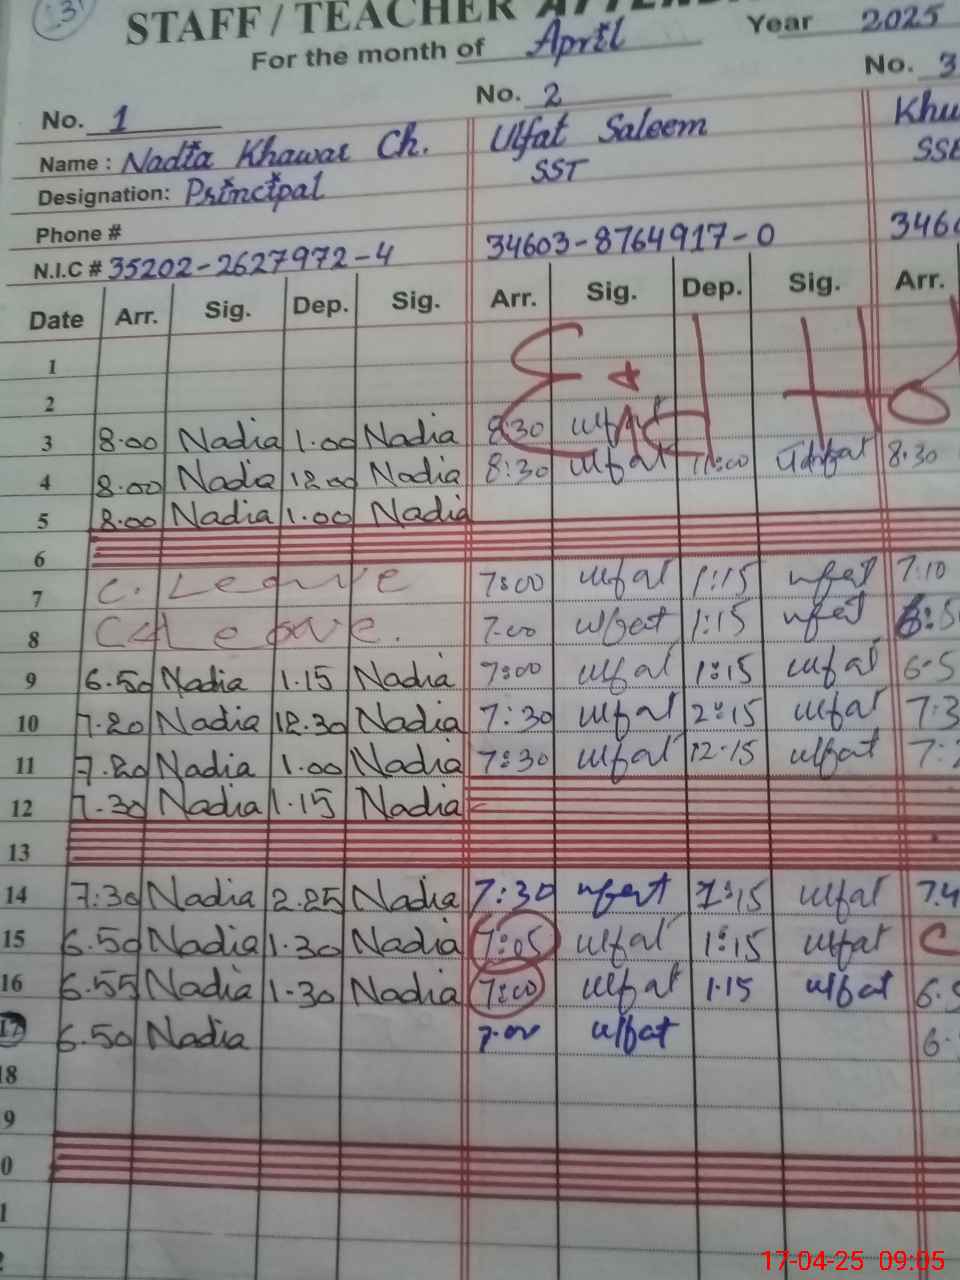 3
STAFF / TEACHER
For the month of April Year 2025
No. 1 No. 2 No. 3
Name : Nadia Khawar Ch. Ulfat Saleem Khu
Designation: Principal SST SSE
Phone #
N.I.C # 35202-2627972-4 34603-8764917-0 346
Date Arr. Sig. Dep. Sig. Arr. Sig. Dep. Sig. Arr.
1
2
3 8.00 Nadia 1.00 Nadia 8:30
4 8.00 Nadia 12.00 Nadia 8:30 Ulfat 11:00 Ulfat 8.30
5 8.00 Nadia 1.00 Nadia
6
7 C. Leave 7:00 Ulfat 1:15 Ulfat 7:10
8 C Leave. 7.00 Ulfat 1:15 Ulfat
9 6.50 Nadia 1.15 Nadia 7:00 Ulfat 1:15 Ulfat 6.5
10 7.20 Nadia 12.30 Nadia 7:30 Ulfat 2:15 Ulfat 7:3
11 7.20 Nadia 1.00 Nadia 7:30 Ulfat 12.15 Ulfat 7:
12 7.30 Nadia 1.15 Nadia
13
14 7:30 Nadia 2.25 Nadia 7:30 Ulfat 1:15 Ulfat 7.4
15 6.50 Nadia 1.30 Nadia 7:05 Ulfat 1:15 Ulfat C
16 6.55 Nadia 1.30 Nadia 7:00 Ulfat 1.15 Ulfat 6.5
17 6.50 Nadia 7.00 Ulfat 6.
18
9
0
1
2
17-04-25 09:05